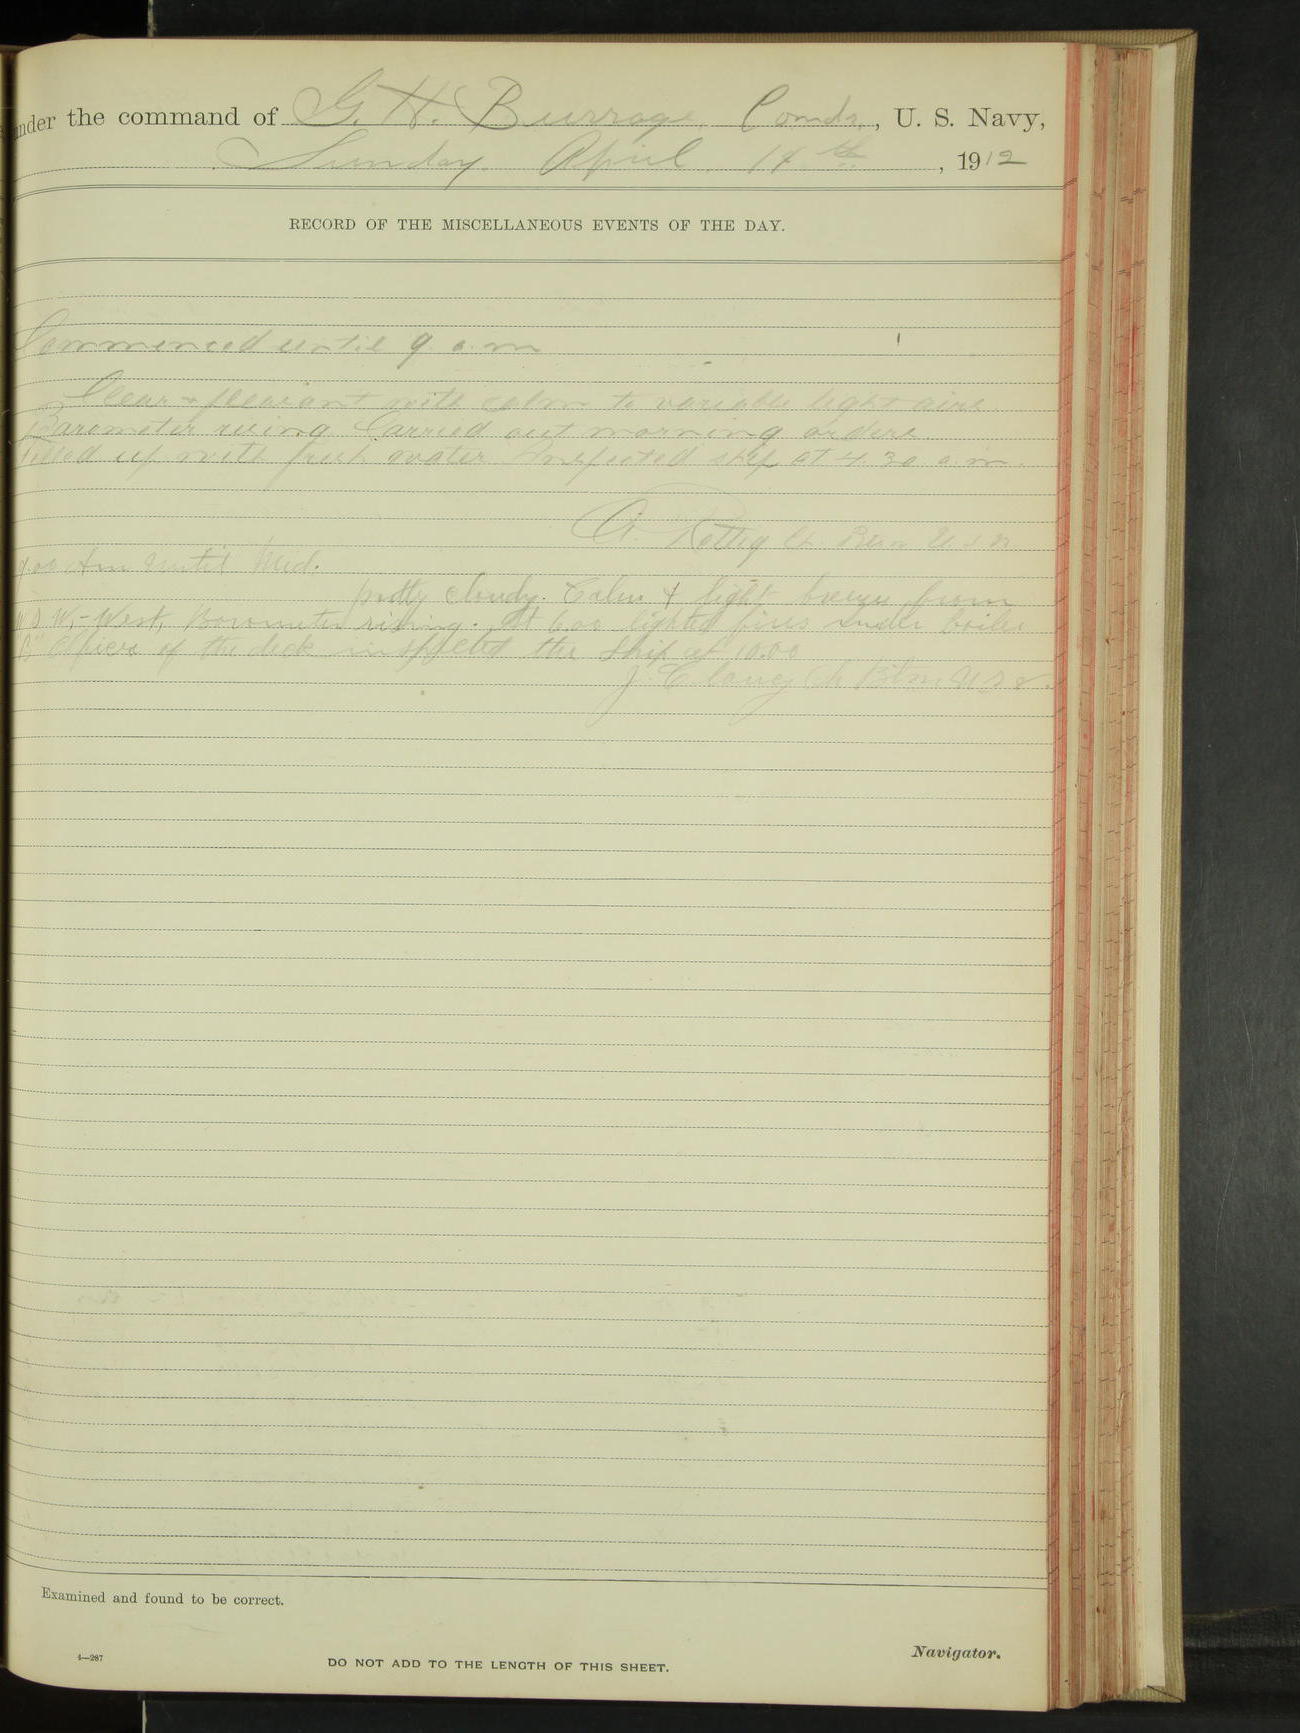 under the command of G. H. Burrage, Comdr., U. S. Navy,
Sunday April 14th, 1912
RECORD OF THE MISCELLANEOUS EVENTS OF THE DAY.
Commenced until 9 a.m
Clear & pleasant with calm to variable light airs.
Barometer rising. Carried out morning orders.
Filled up with fresh water. Inspected ship at 4.30 a.m.
A. Rettig Ch. U.S.N
9.00 Am until Mid.
partly cloudy. Calm & light breeze from
W.S.W,-West, Barometer rising. At 6.00 lighted fires under boiler
"B" Officer of the deck inspected the Ship at 10.00
J. Clancy Ch Btsn. U.S.N.
Examined and found to be correct.
Navigator.
4—287
DO NOT ADD TO THE LENGTH OF THIS SHEET.